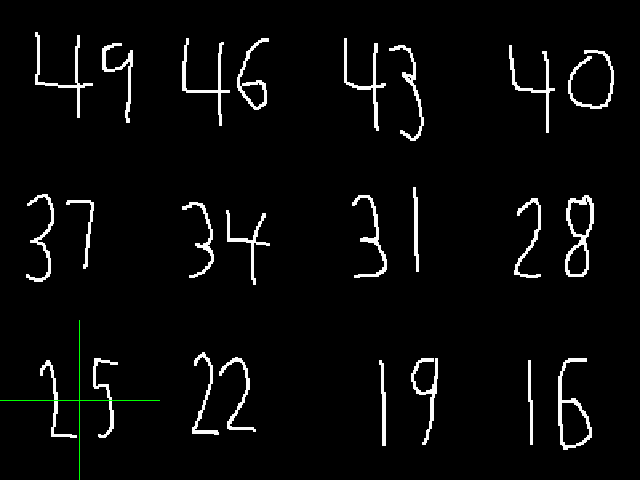 49 46 43 40
37 34 31 28
25 22 19 16